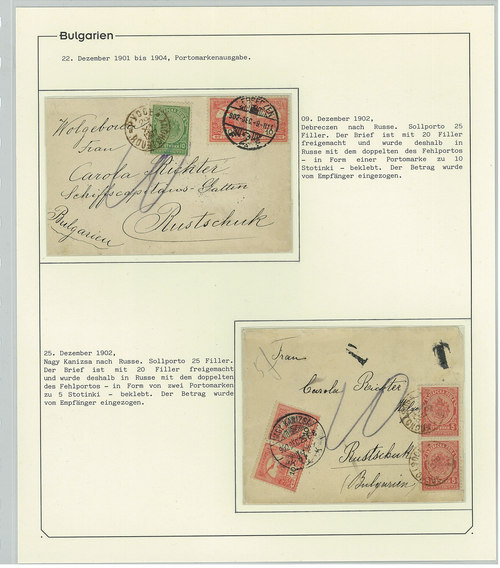 Bulgarien
22. Dezember 1901 bis 1904, Portomarkenausgabe.
09. Dezember 1902,
Debreczen nach Russe. Sollporto 25
Filler. Der Brief ist mit 20 Filler
freigemacht und wurde deshalb in
Russe mit dem doppelten des Fehlportos
- in Form einer Portomarke zu 10
Stotinki - beklebt. Der Betrag wurde
vom Empfänger eingezogen.
Wolgeboren
Frau
Carola Richter
Schiffscapitäns-Gattin
Rustschuk
Bulgarien
25. Dezember 1902,
Nagy Kanizsa nach Russe. Sollporto 25 Filler.
Der Brief ist mit 20 Filler freigemacht
und wurde deshalb in Russe mit dem doppelten
des Fehlportos - in Form von zwei Portomarken
zu 5 Stotinki - beklebt. Der Betrag wurde
vom Empfänger eingezogen.
T
T
Frau
Carola Richter
10
Rustschuk
(Bulgarien)